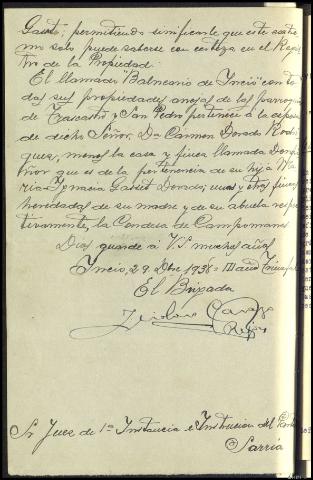 Gasset; permitiendo significarle que este extre-
mo solo puede saberse con certeza en el Regis-
tro de la Propiedad.
El llamado "Balneario de Incio" con to-
das sus propiedades anejas de las parroquias
de Trascastro y San Pedro pertenece a la esposa
de dicho Señor, Dª Carmen Dorado Rodrí-
guez, menos la casa y finca llamada
que es de la pertenencia de su hija Ma-
ria Ignacia Gasset Dorado; unas y otras fincas
heredadas de su madre y de su abuela respec-
tivamente, la Condesa de Campomanes
Dios guarde á V.S. muchos años
Incio, 29. Dbre 1938= III año Triunfal
El Brigada
Sr Juez de 1ª Instancia e Instrucción del
Sarria